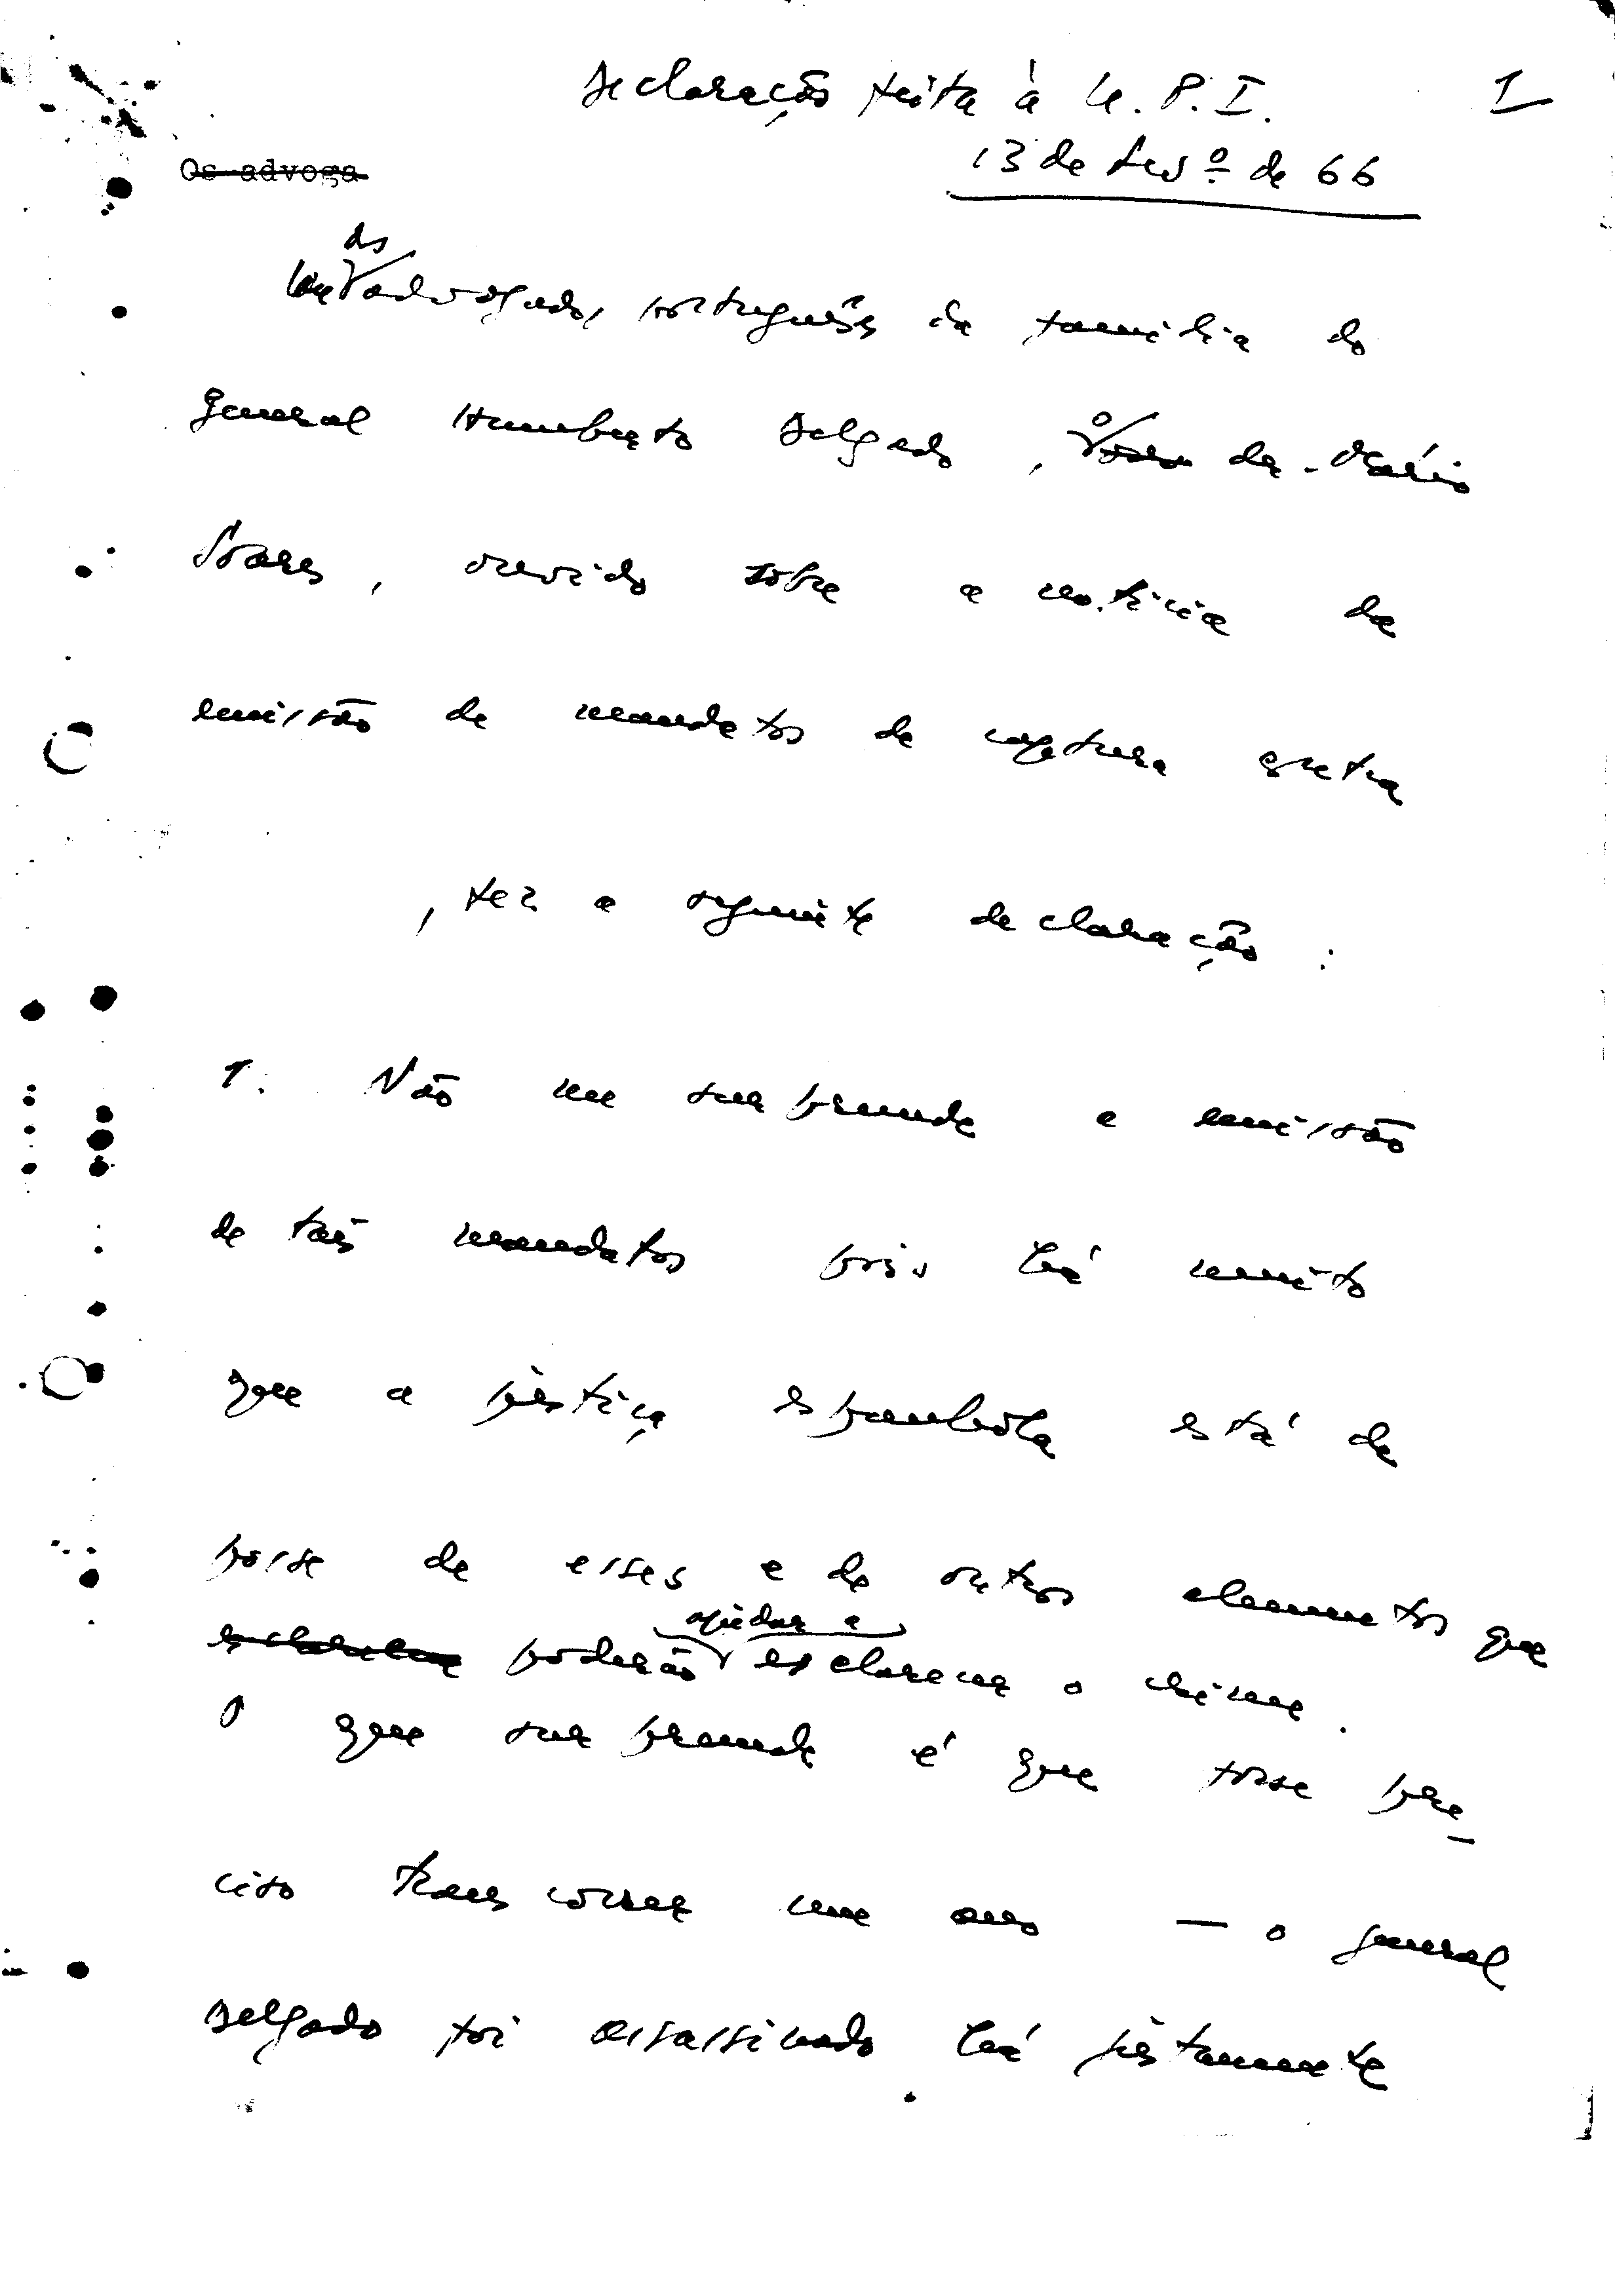 Declaração feita à U.P.I. 1
13 de Fevº de 66
Os advoga
Um dos advogados portugueses da família do
general Humberto Delgado, o dr. Mário
Soares, ouvido sobre a notícia da
emissão de mandatos de captura contra
, fez a seguinte declaração:
1. Não me surpreende a emissão
de tais mandatos pois há muito
que a justiça espanhola está de
posse de esses e de outros elementos que
ajudar a
esclarecer poderão esclarecer o crime.
O que surpreende é que fosse pre-
ciso transcorrer um ano — o general
Delgado foi assassinado há justamente